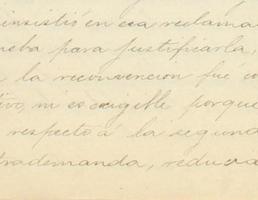 insistió en esa reclama
ueba para justificarla,
a la reconvencion fué co
tivo, ni es exigible porque
respecto á la segund
trademanda, reduxa